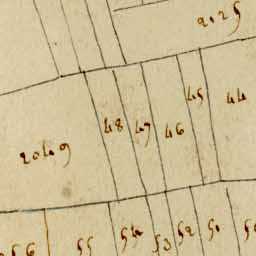 2025
45
44
48
47
46
2049
56
55
54
53
52
51